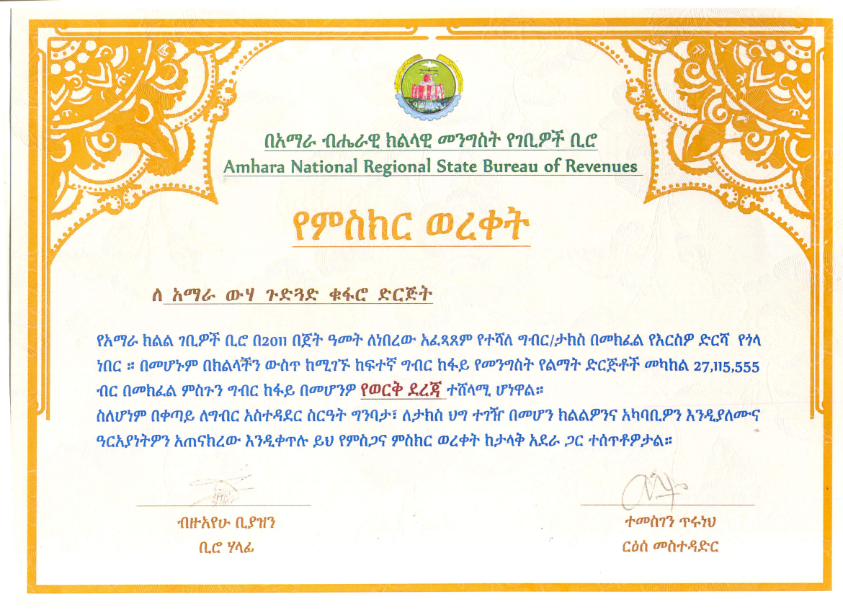 በአማራ ብሔራዊ ክልላዊ መንግስት የገቢዎች ቢሮ
Amhara National Regional State Bureau of Revenues
የምስክር ወረቀት
ለ አማራ ውሃ ጉድጓድ ቁፋሮ ድርጅት
የአማራ ክልል ገቢዎች ቢሮ በ2011 በጀት ዓመት ለነበረው አፈጻጸም የተሻለ ግብር/ታክስ በመክፈል የእርስዎ ድርሻ የጎላ
ነበር ። በመሆኑም በክልላችን ውስጥ ከሚገኙ ከፍተኛ ግብር ከፋይ የመንግስት የልማት ድርጅቶች መካከል 27,115,555
ብር በመክፈል ምስጉን ግብር ከፋይ በመሆንዎ የወርቅ ደረጃ ተሸላሚ ሆነዋል።
ስለሆነም በቀጣይ ለግብር አስተዳደር ስርዓት ግንባታ፣ ለታክስ ህግ ተገዥ በመሆን ክልልዎንና አካባቢዎን እንዲያለሙና
ዓርአያነትዎን አጠናክረው እንዲቀጥሉ ይህ የምስጋና ምስክር ወረቀት ከታላቅ አደራ ጋር ተሰጥቶዎታል።
ብዙአየሁ ቢያዝን
ቢሮ ሃላፊ
ተመስገን ጥሩነህ
ርዕሰ መስተዳድር